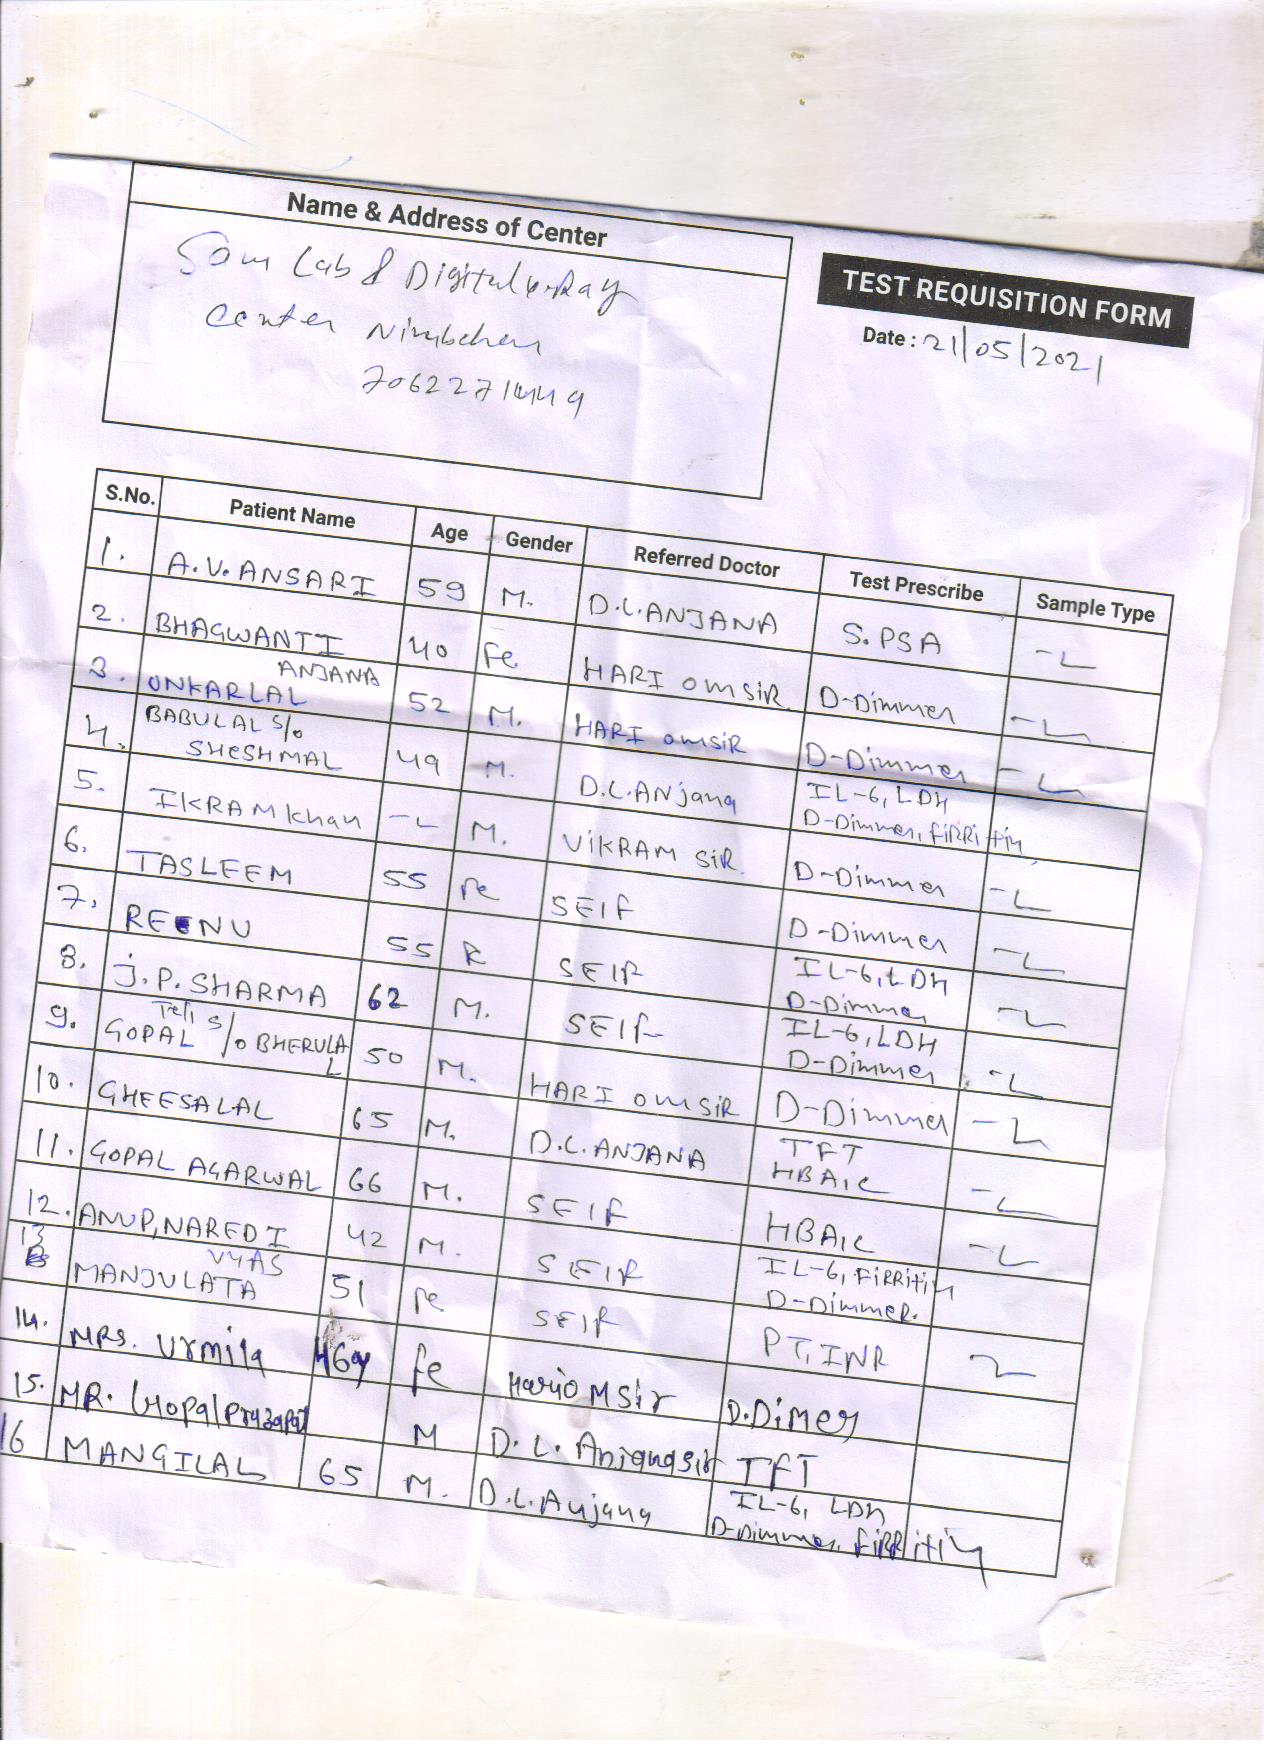 Name & Address of Center
Sam Lab & Digital X-Ray
Center Nimbehera
7062271449
TEST REQUISITION FORM
Date : 21/05/2021
S.No. Patient Name Age Gender Referred Doctor Test Prescribe Sample Type
1. A.V. ANSARI 59 M. D.L. ANJANA S. PSA
2. BHAGWANTI ANJANA 40 Fe. HARI OM SIR D-Dimmer
3. ONKARLAL 52 M. HARI OM SIR D-Dimmer
4. BABULAL S/o
SHESHMAL 49 M. D.L. ANjana IL-6, LDH
D-Dimmer, FiRRitin
5. IKRAM khan M. VIKRAM SIR. D-Dimmer
6. TASLEEM 55 Fe SEIF D-Dimmer
7. REENU 55 Fe SEIF IL-6, LDH
D-Dimmer
8. J.P. SHARMA 62 M. SEIF IL-6, LDH
D-Dimmer
9. GOPAL Teli S/o BHERULAL 50 M. HARI OM SIR D-Dimmer
10. GHEESALAL 65 M. D.L. ANJANA TFT
HBA1C
11. GOPAL AGARWAL 66 M. SEIF HBA1C
12. ANUP, NAREDI 42 M. SEIF IL-6, FiRRitin
D-Dimmer.
13 MANJULATA VYAS 51 Fe SEIF PT, INR
14. MRS. Urmila 46y fe Hariom Sir D.Dimer
15. MR. Gopal Prajapat M D. L. Anjana Sir TFT
16 MANGILAL 65 M. D.L. Anjana IL-6, LDH
D-Dimmer, FiRRitin